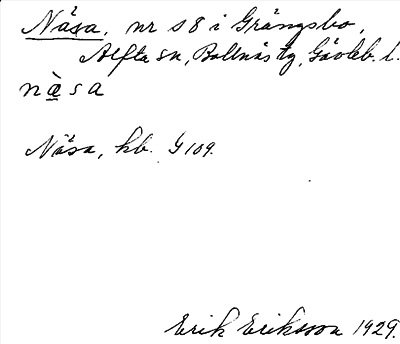 Näsa, nr s 8 i Grängsbo,
Alfta sn, Bollnäs tg, Gävleb. l.
næ̀sa
Näsa, kb. G 109.
Erik Eriksson 1929.